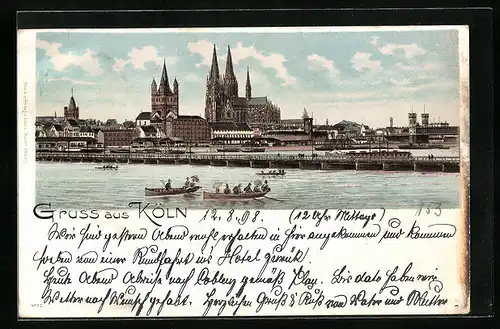 Gruss aus Köln
12.8.98. (12 Uhr Mittags) 153
Wir sind gestern Abend wohl erhalten in hier angekommen und kommen
soeben von einer Rundfahrt ins Hotel zurück.
Heute Abend Abreise nach Coblenz gemäß Plan. Bis dato haben wir
Wetter nach Wunsch gehabt. Herzlichen Gruß & Kuß von Vater und Mutter